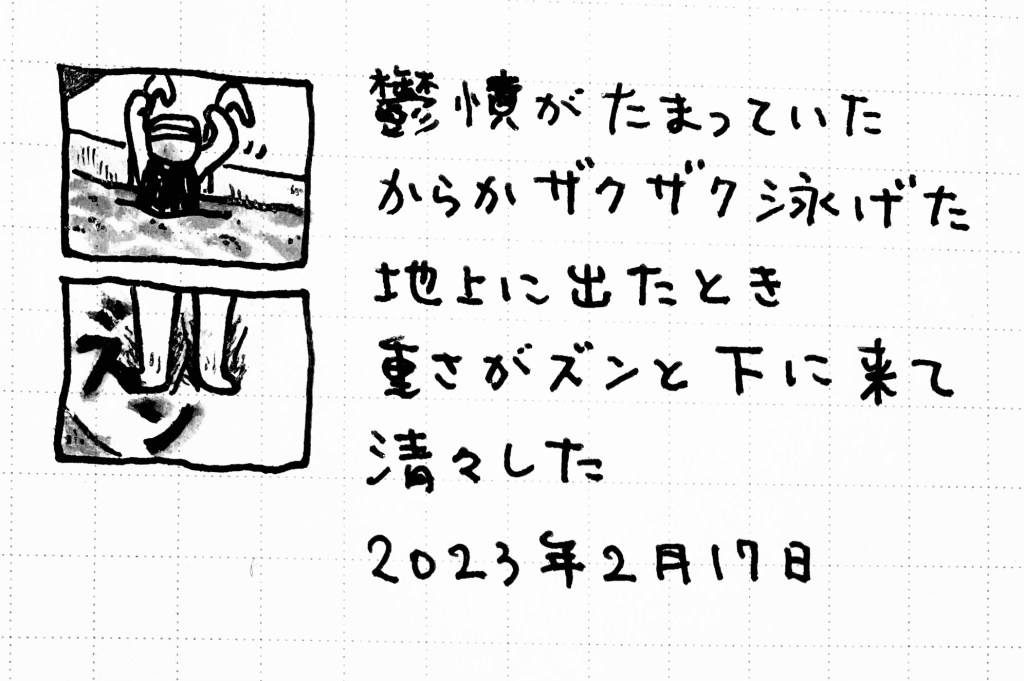 ズン
鬱憤がたまっていた
からかザクザク泳げた
地上に出たとき
重さがズンと下に来て
清々した
2023年2月17日